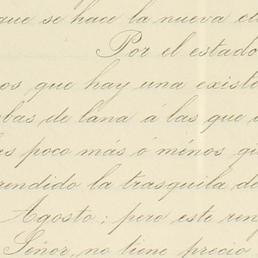 que se hace la nueva el
Por el estado
os que hay una existe
bas de lana á las que
as poco más ó ménos qu
rendido la trasquila de
Agosto; pero este ren
Señor, no tiene precio